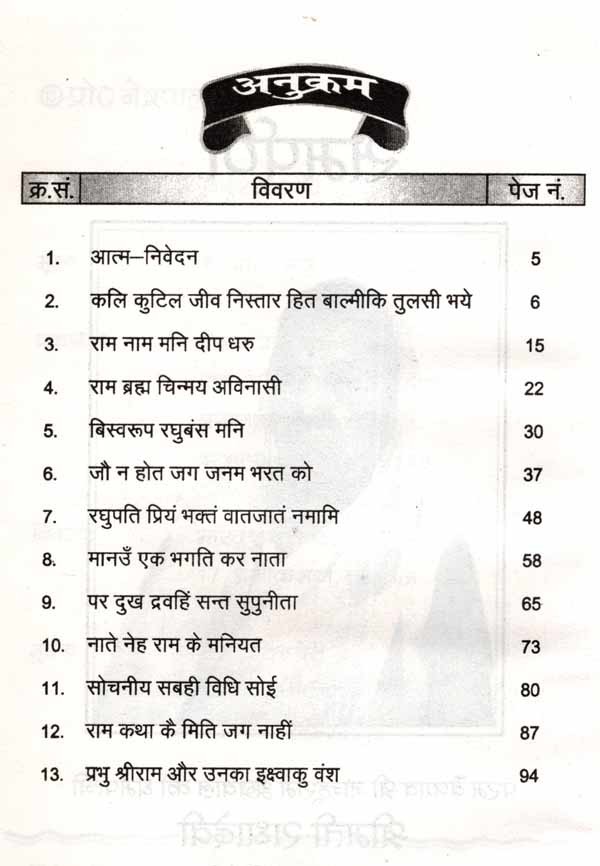 अनुक्रम
क्र.सं. विवरण पेज नं.
1. आत्म–निवेदन 5
2. कलि कुटिल जीव निस्तार हित बाल्मीकि तुलसी भये 6
3. राम नाम मनि दीप धरु 15
4. राम ब्रह्म चिन्मय अविनासी 22
5. बिस्वरूप रघुबंस मनि 30
6. जौ न होत जग जनम भरत को 37
7. रघुपति प्रियं भक्तं वातजातं नमामि 48
8. मानउँ एक भगति कर नाता 58
9. पर दुख द्रवहिं सन्त सुपुनीता 65
10. नाते नेह राम के मनियत 73
11. सोचनीय सबही विधि सोई 80
12. राम कथा कै मिति जग नाहीं 87
13. प्रभु श्रीराम और उनका इक्ष्वाकु वंश 94